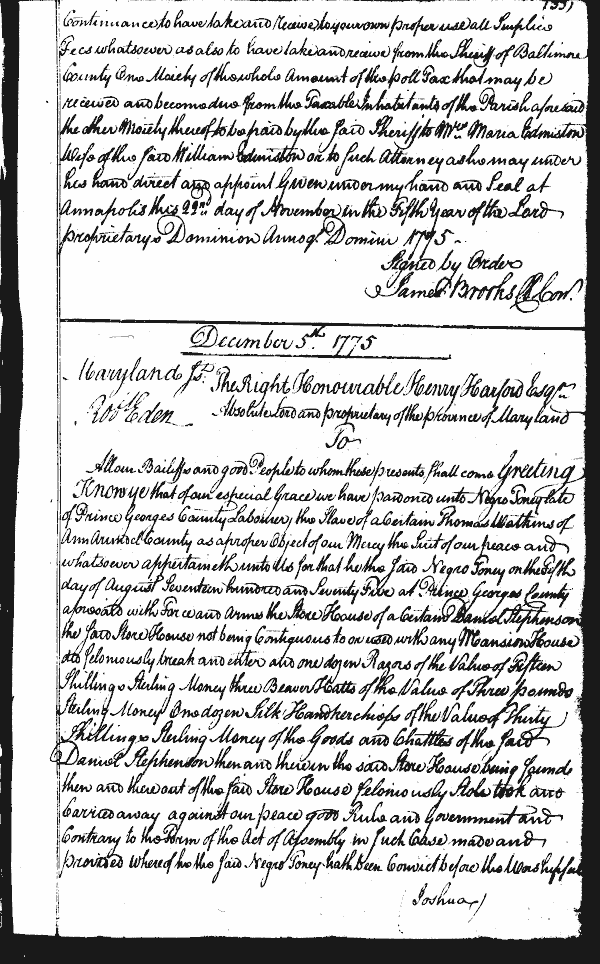 Continuance to have take and receive to your own proper use all Surplice
Fees whatsoever as also to have take and receive from the Sheriff of Baltimore
County One Moiety of the whole Amount of the Poll Tax that may be
received and become due from the Taxable Inhabitants of the Parish aforesaid
the other Moiety thereof to be paid by the said Sheriff to Mrs. Maria Edmiston
Wife of the said William Edmiston or to such Attorney as he may under
his hand direct and appoint Given under my hand and Seal at
Annapolis this 22d. day of November in the Fifth Year of the Lord
proprietarys Dominion Annoq. Domini 1775 -
Signed by Order
James Brooks Cl Con.
December 5th. 1775
Maryland Sst. The Right Honourable Henry Harford Esqr.
Robt Eden Absolute Lord and proprietary of the province of Maryland
To
All our Bailiffs and good People to whom these presents shall come Greeting
Know ye that of our especial Grace we have pardoned unto Negro Toney late
of Prince Georges County Labourer, the Slave of a Certain Thomas Watkins of
Ann Arundel County as a proper Object of our Mercy the Suit of our peace and
whatsoever appertaineth unto Us for that he the said Negro Toney on the Fifth
day of August Seventeen hundred and Seventy Five at Prince Georges County
aforesaid with Force and Arms the Store House of a Certain Daniel Stephenson
the said Store House not being Contiguous to or used with any Mansion House
did feloniously break and enter and one dozen Razors of the Value of Fifteen
Shillings Sterling Money three Beaver Hatts of the Value of Three pounds
Sterling Money One dozen Silk Handkerchiefs of the Value of Thirty
Shillings Sterling Money of the Goods and Chattles of the said
Daniel Stephenson then and there in the said Store House being found
then and there out of the said Store House feloniously Stole took and
Carried away against our peace good Rule and Government and
Contrary to the Form of the Act of Assembly in Such Case made and
provided whereof he the said Negro Toney hath been Convict before the Worshipfull
Joshua